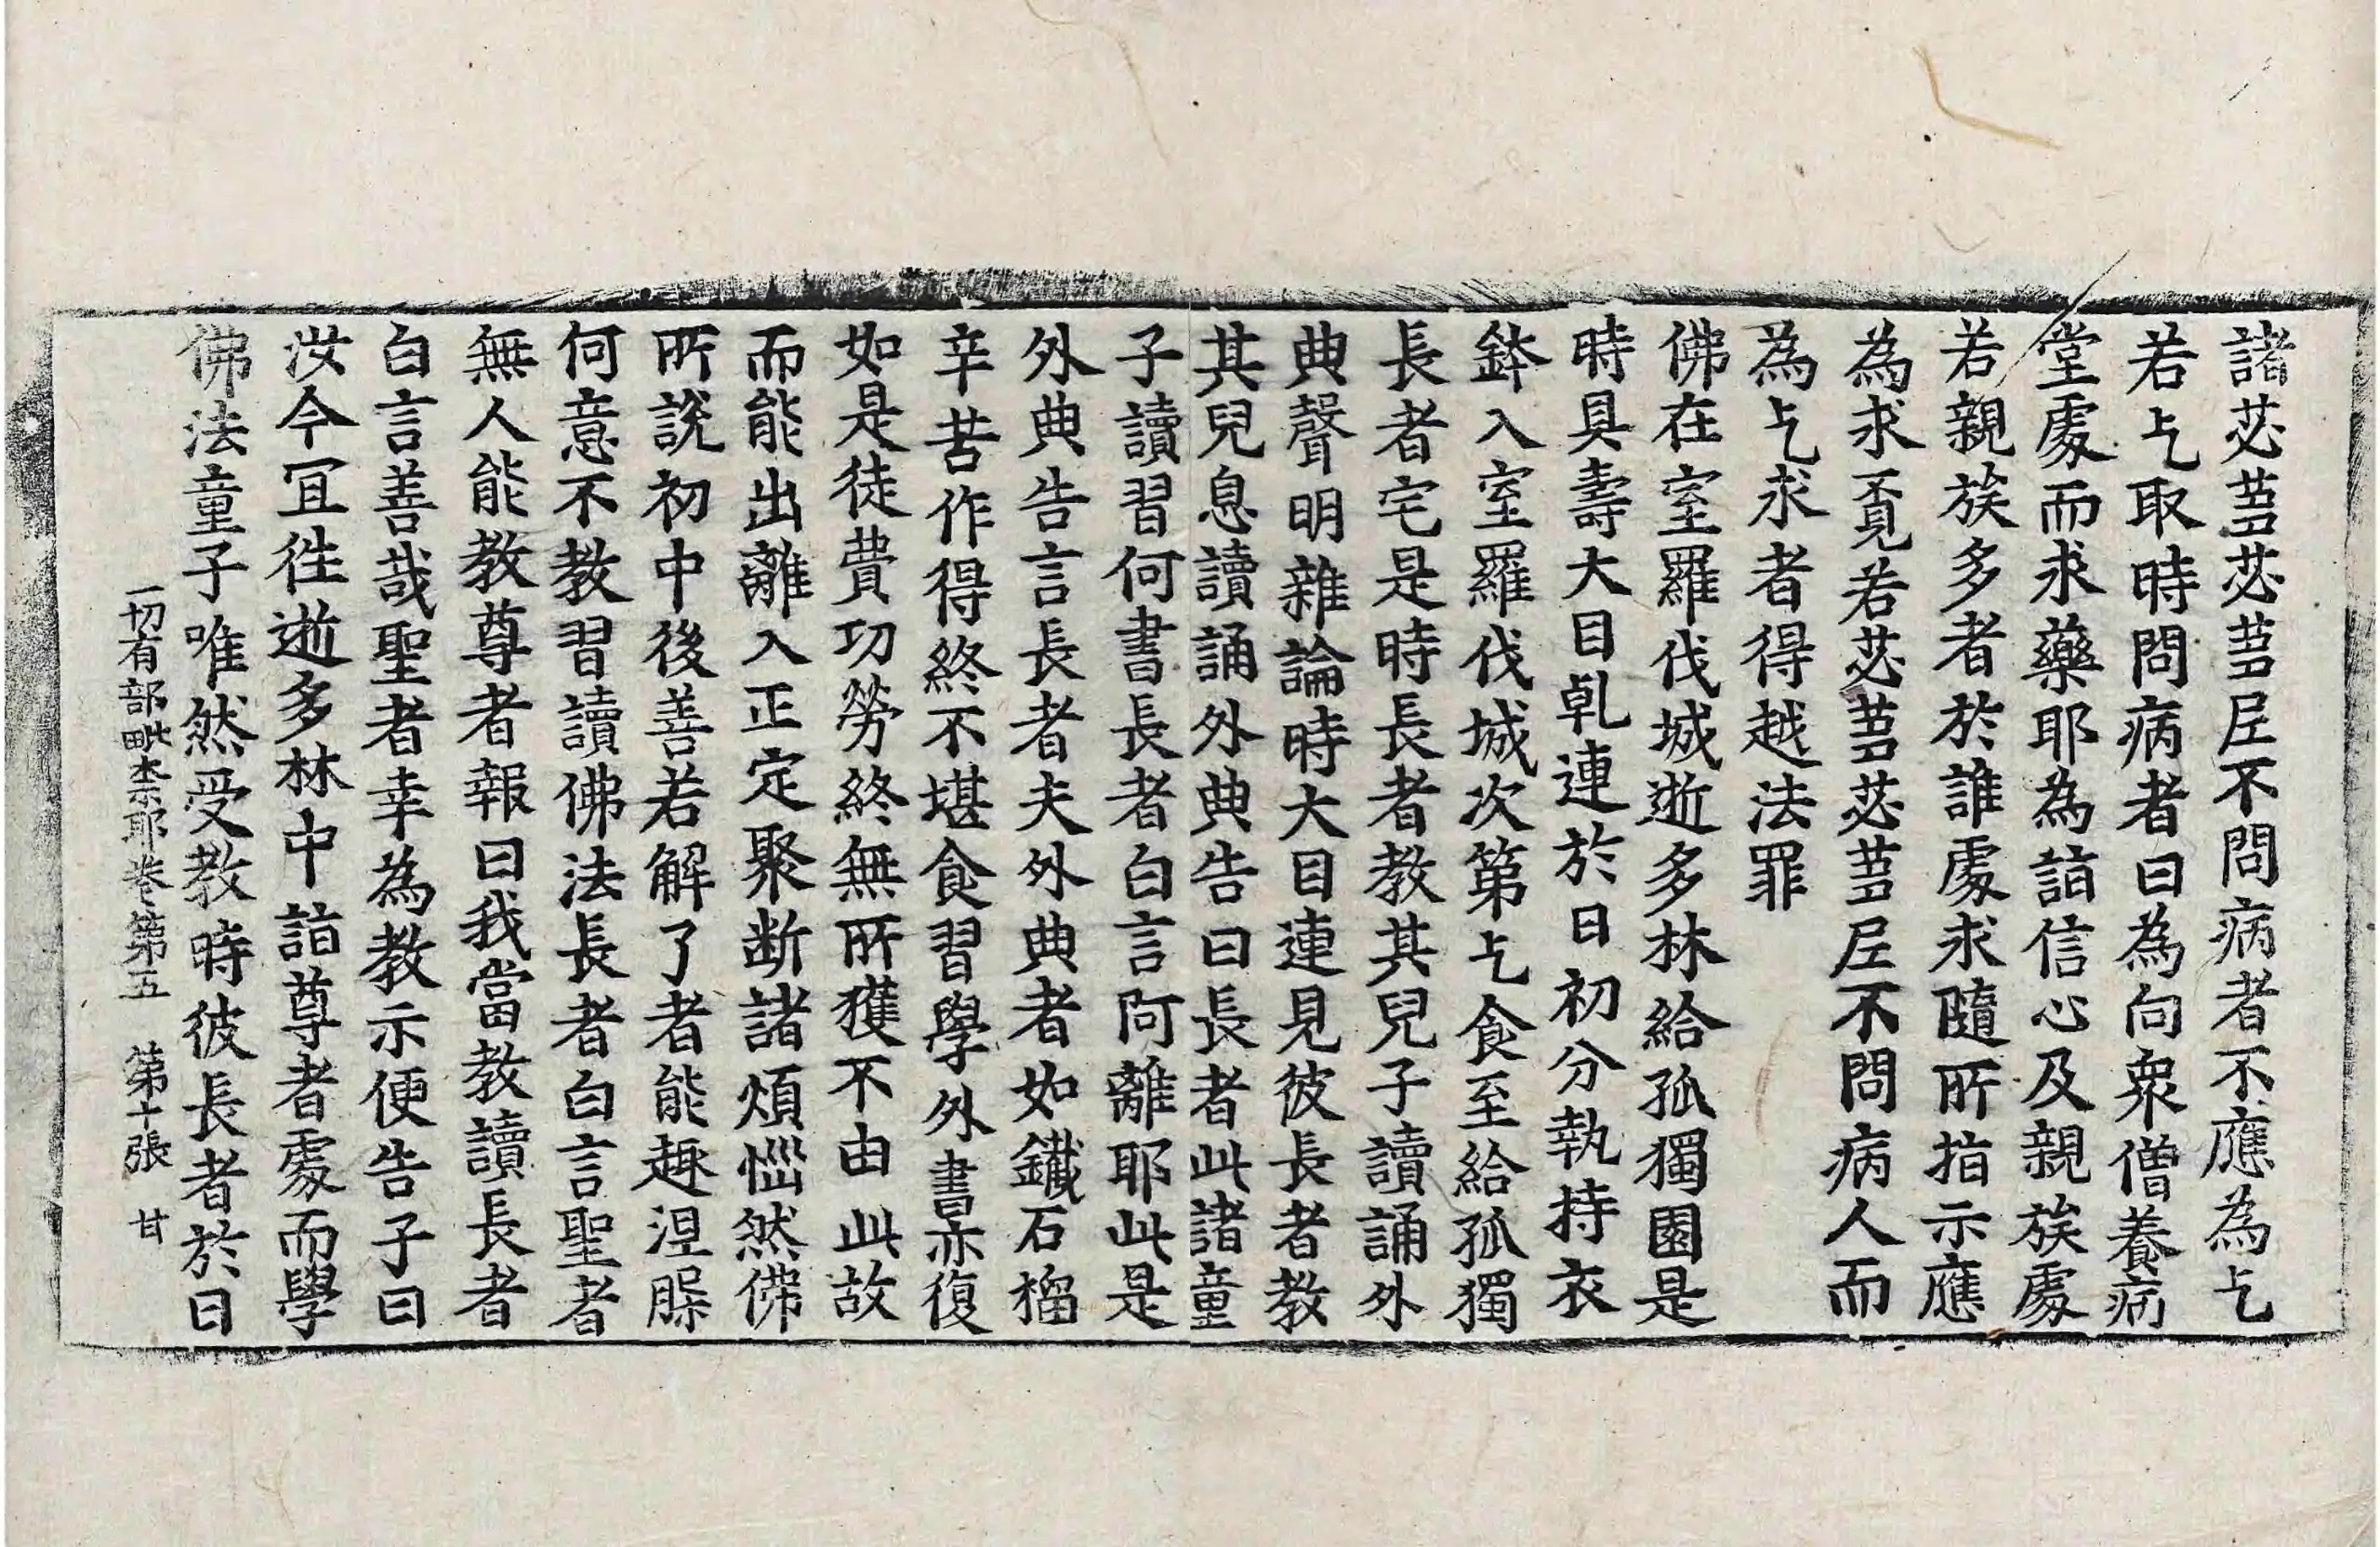 諸苾蒭苾蒭𡰱不問病者不應為乞
若乞取時問病者曰為向衆僧養病
堂處而求藥耶為詣信心及親族處
若親族多者於誰處求隨所指示應
為求覔若苾蒭苾蒭𡰱不問病人而
為乞求者得越法罪
佛在室羅伐城逝多林給孤獨園是
時具壽大目乹連於日初分執持衣
鉢入室羅伐城次第乞食至給孤獨
長者宅是時長者教其兒子讀誦外
典聲明雜論時大目連見彼長者教
其兒息讀誦外典告曰長者此諸童
子讀習何書長者白言阿離耶此是
外典告言長者夫外典者如鐵石榴
辛苦作得終不堪食習學外書亦復
如是徒費功勞終無所獲不由此故
而能出離入正定聚断諸煩惱然佛
所說初中後善若解了者能趣涅槃
何意不教習讀佛法長者白言聖者
無人能教尊者報曰我當教讀長者
白言善哉聖者幸為教示便告子曰
汝今冝徃逝多林中詣尊者處而學
佛法童子唯然受教時彼長者於日
一切有部毗奈耶卷第五　第十張　甘